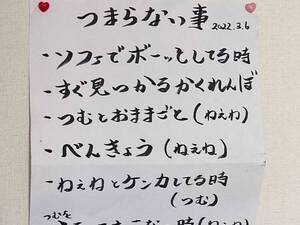 つまらない事 2022.3.6
・ソファでボーッとしてる時
・すぐ見つかるかくれんぼ
・つむとおままごと(ねぇね)
・べんきょう(ねぇね)
・ねぇねとケンカしてる時
(つむ)
つむを